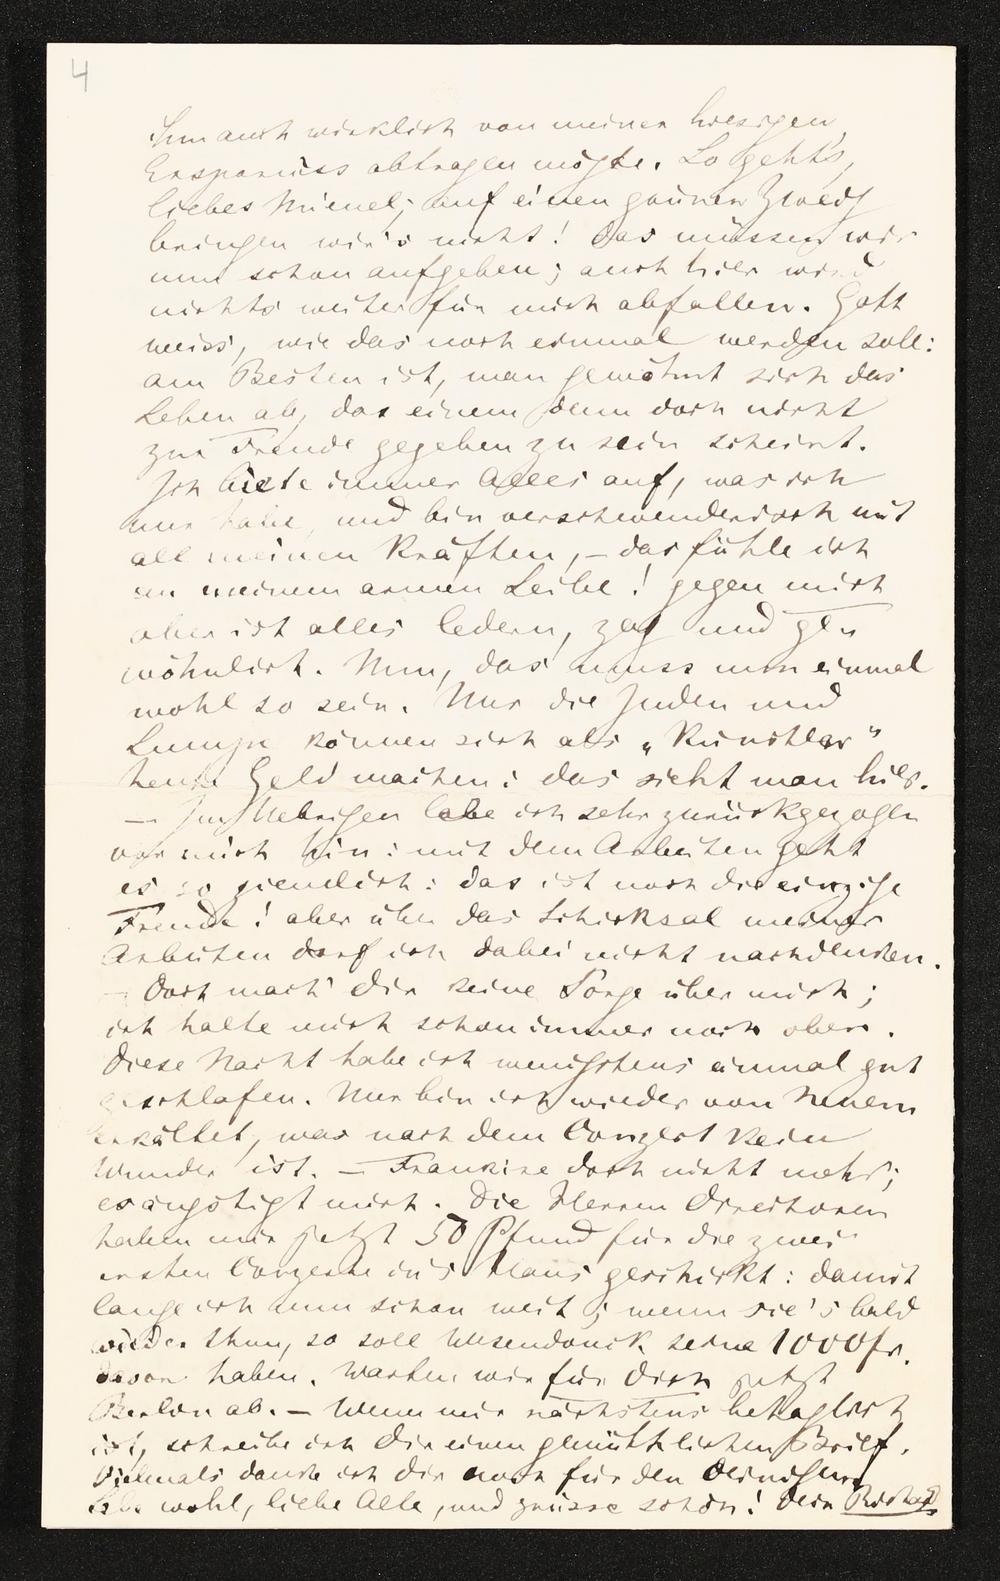 4
ihm auch wirklich von meiner hiesigen
Ersparniss abtragen mögte. So geht's,
liebes Mienel; auf einen grünen Zweig
bringen wir's nicht! Das müssen wir
nun schon aufgeben; auch hier wird
nichts weiter für mich abfallen. Gott
weiss, wie das noch einmal werden soll:
am Besten ist, man gewöhnt sich das
Leben ab, das einem denn doch nicht
zur Freude gegeben zu sein scheint.
Ich biete immer Alles auf, was ich
nur habe, und bin verschwenderisch mit
all meinen Kräften, – das fühle ich
an meinem armen Leibe! gegen mich
aber ist alles ledern, zäh und ge=
wöhnlich. Nun, das muss nun einmal
wohl so sein. Nur die Juden und
Lumpe können sich als „Künstler"
heute Geld machen: das sieht man hier.
— Im Uebrigen lebe ich sehr zurückgezogen
vor mich hin: mit dem Arbeiten geht
es so ziemlich: das ist noch die einzige
Freude! aber über das Schicksal meiner
Arbeiten darf ich dabei nicht nachdenken.
– Doch mach' Dir keine Sorge über mich;
ich halte mich schon immer noch oben.
Diese Nacht habe ich wenigstens einmal gut
geschlafen. Nur bin ich wieder von Neuem
erkältet, was nach dem Conzert kein
Wunder ist. — Frankire doch nicht mehr;
es ängstigt mich. Die Herren Directoren
haben mir jetzt 50 Pfund für die zwei
ersten Conzerte in's Haus geschickt: damit
lange ich nun schon weit; wenn sie's bald
wieder thun, so soll Wesendonck seine 1000 fr.
davon haben. Warten wir für Dich jetzt
Berlin ab. — Wenn mir nächstens behaglich
ist, schreibe ich Dir einen gemüthlichen Brief.
Vielmals danke ich Dir noch für den Deinigen.
Leb' wohl, liebe Alte, und grüsse schön! Dein Richard